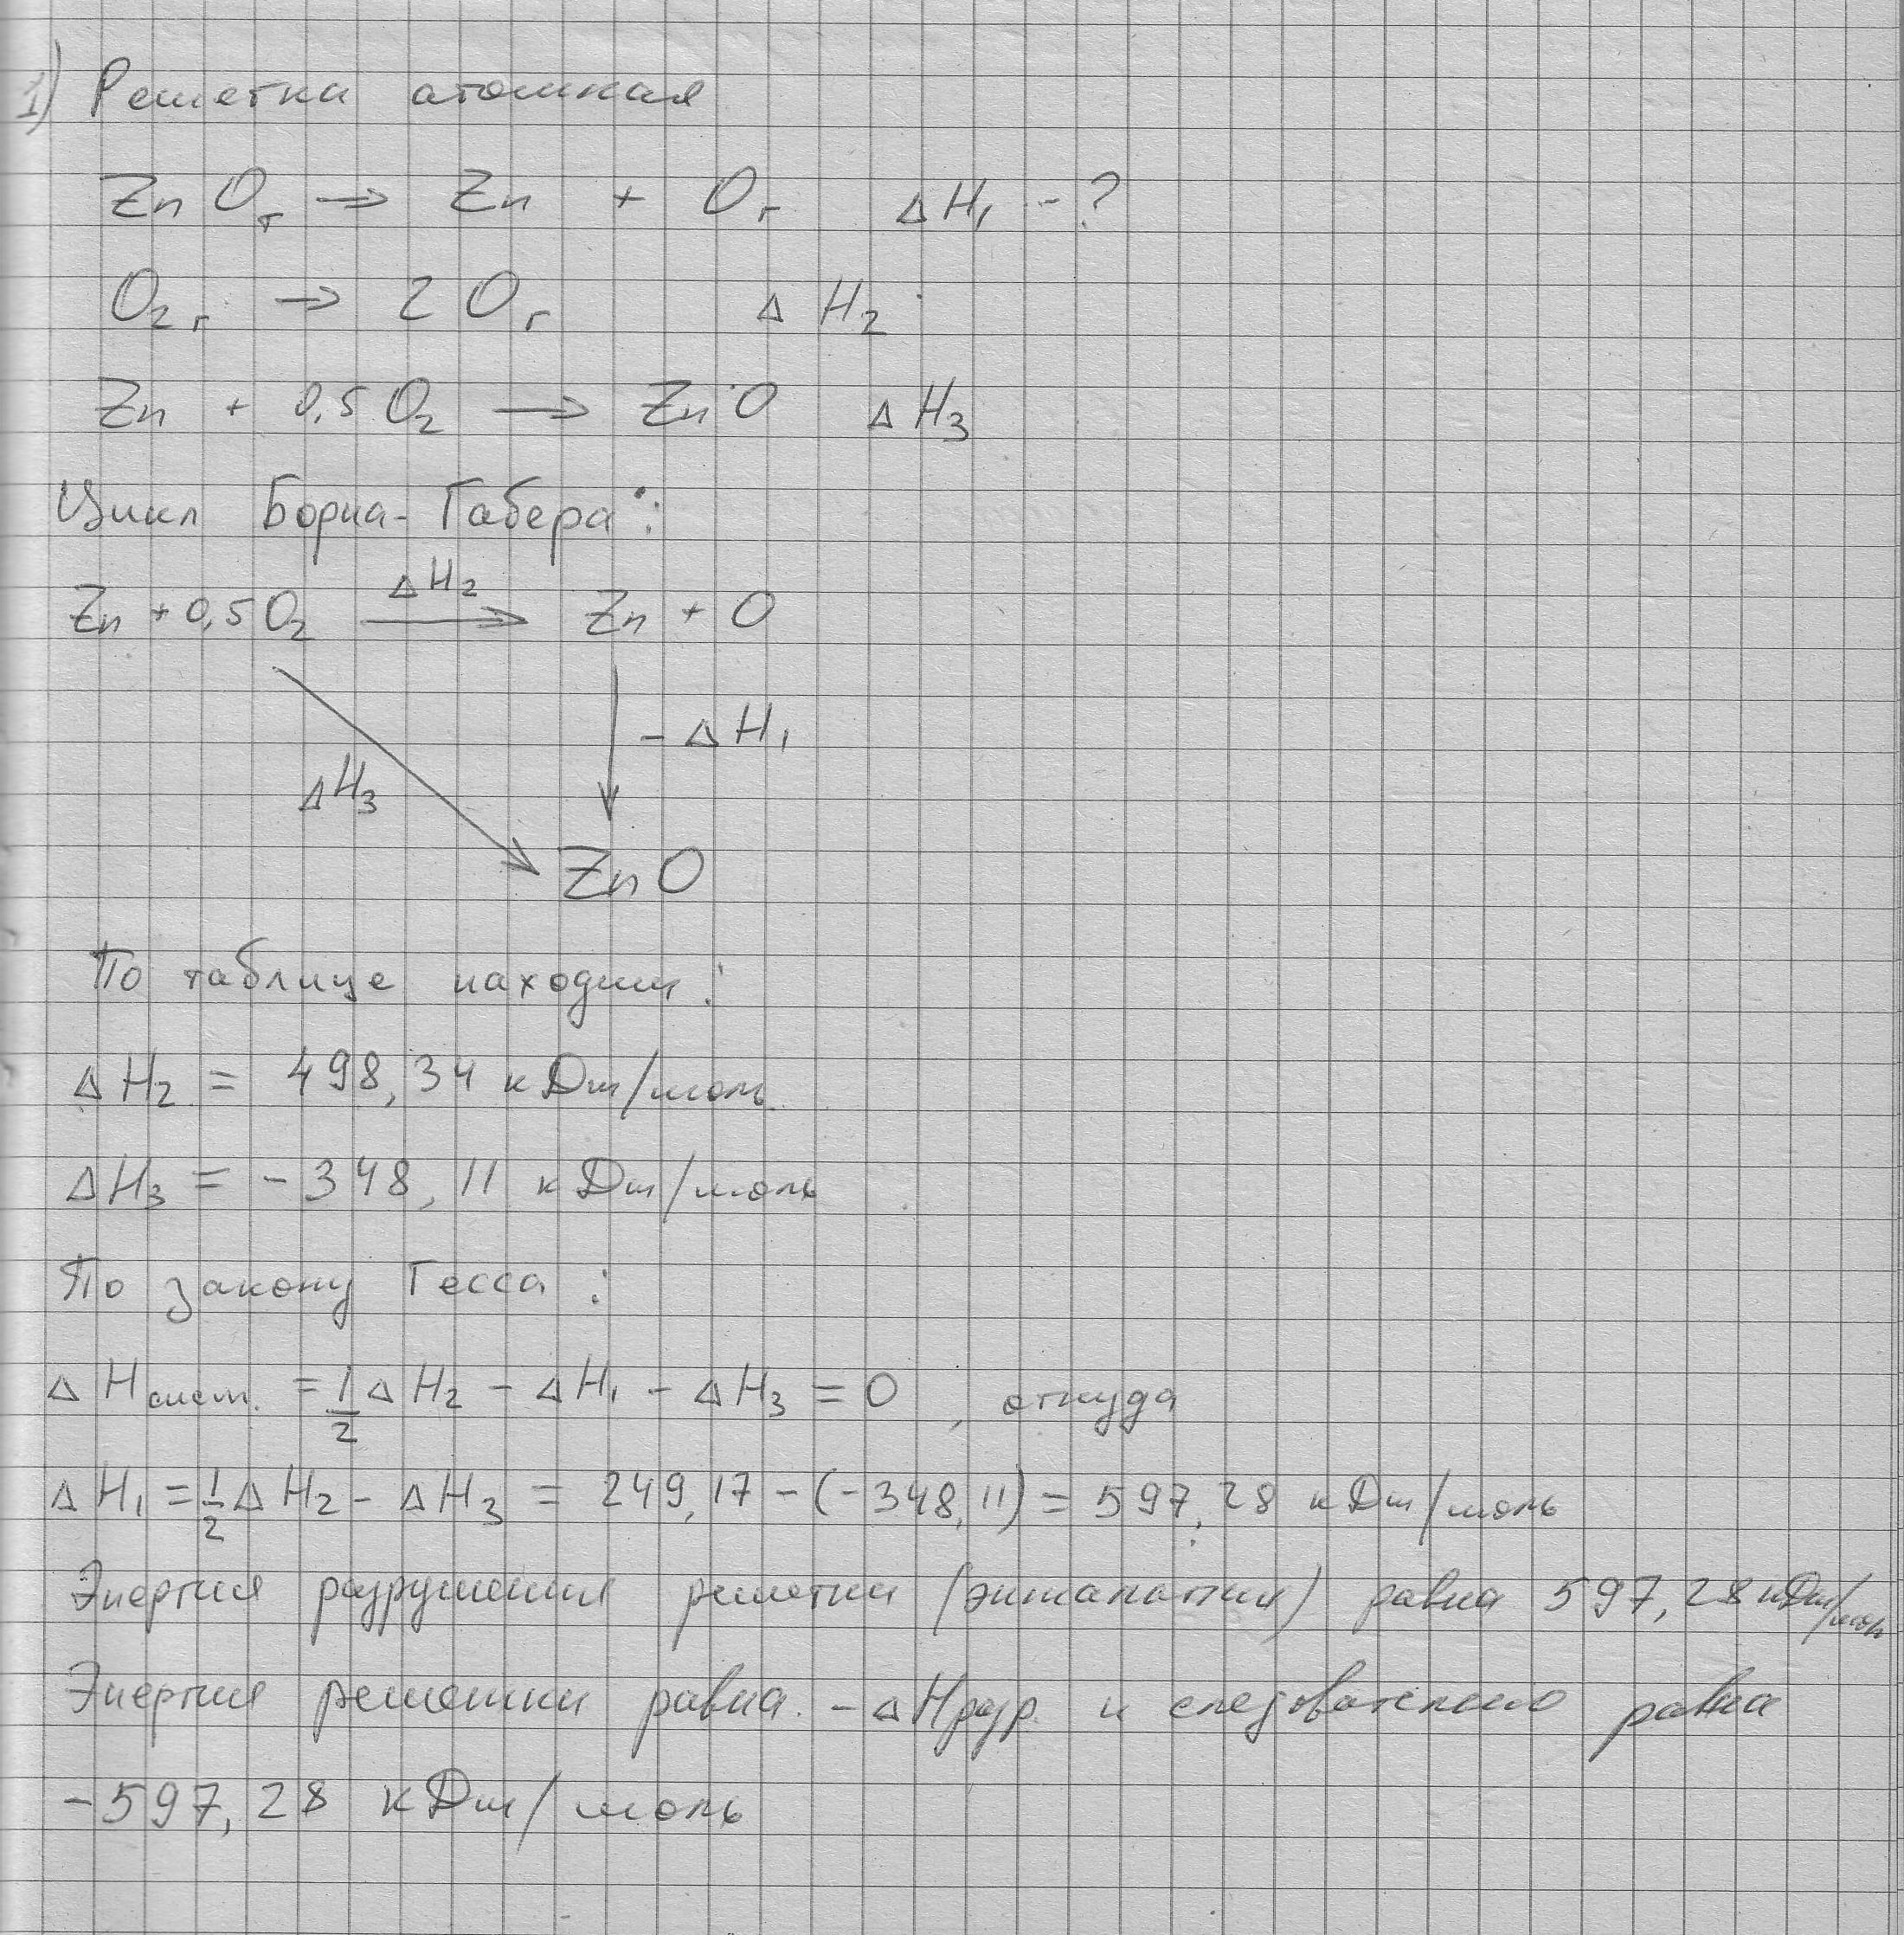 1) Решетка атомная
ZnOт → Zn + Oг ΔH₁ - ?
O₂г → 2Oг ΔH₂
Zn + 0,5O₂ → ZnO ΔH₃
Цикл Борна-Габера:
Zn + 0,5O₂ ΔH₂ → Zn + O
ΔH₃ - ΔH₁
ZnO
По таблице находим:
ΔH₂ = 498,34 кДж/моль
ΔH₃ = -348,11 кДж/моль
По закону Гесса:
ΔHсист. = 1/2 ΔH₂ - ΔH₁ - ΔH₃ = 0, откуда
ΔH₁ = 1/2 ΔH₂ - ΔH₃ = 249,17 - (-348,11) = 597,28 кДж/моль
Энергия разрушения решетки (энтальпия) равна 597,28 кДж/моль
Энергия решетки равна -ΔHразр. и следовательно равна
-597,28 кДж/моль